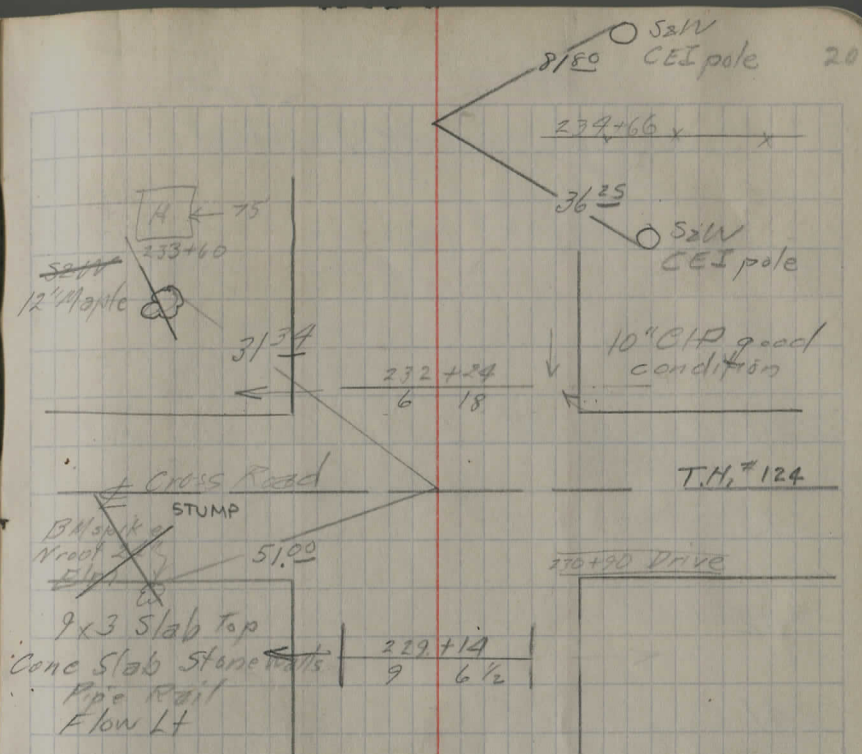 S&W
CEI pole
20
81 80
234+66
H ← 75'
233+60
36 25
S&W
CEI pole
S&W
12" Maple
31 34
10" CIP good
condition
232 +24
6 18
Cross Road
T.H. #124
STUMP
BM spike
N root 22"
Elm
51.00
230+90 Drive
9x3 Slab Top
Conc Slab Stone Walls
Pipe Rail
Flow Lt
229+14
9 6 1/2